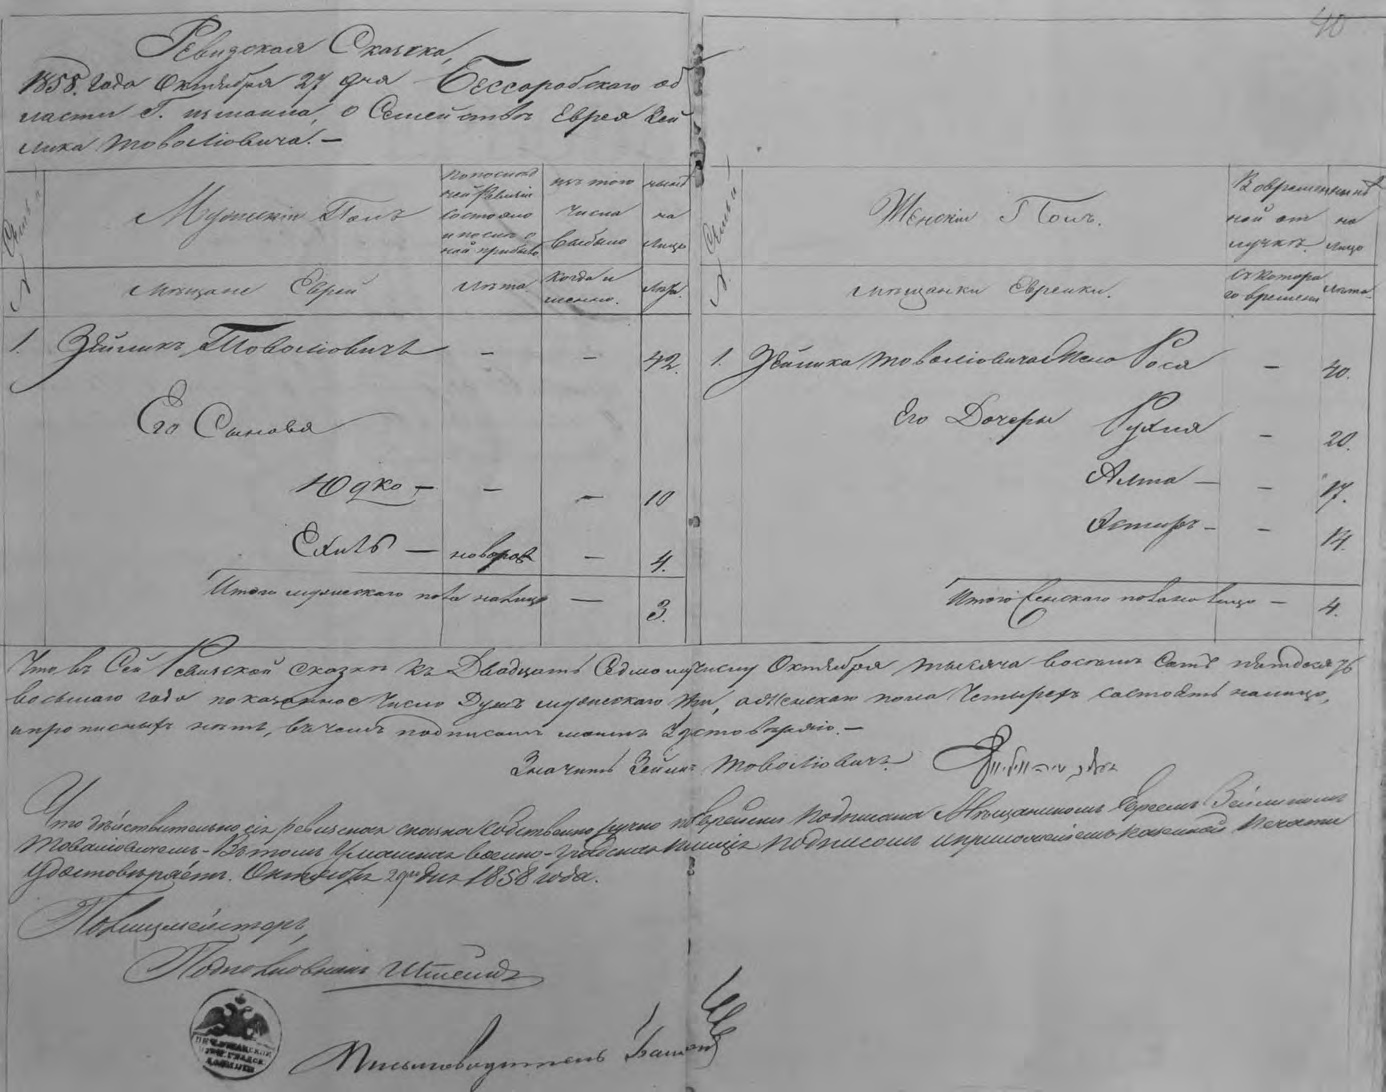 40
Ревизская Сказка,
1858. года Октября 27 дня Бессарабской об
ласти Г. Измаила, о Семействе Еврея Зей
лика Товаліовича. —
№ Семьи
Мужескій Полъ
По послед
ней Ревизіи
состояло
и после о
ной прибыло
изъ того
числа
выбыло
ныне
на
лицо
Мещане Еврей
лета
когда и
менно.
лета.
1. Зейликъ Товаліовичъ — — 42.
Его Сыновя
Юдко — — — 10
Ехиль — новорож — 4.
Итого мужескаго пола налицо — 3.
№ Семьи
Женскій Полъ.
В времен
ной от
лучке.
на
лицо
мещанки Еврейки.
съ котора
го времени
лета.
1. Зейлика Товаліовича Жена Рося — 40.
Его Дочеры Рухля — 20.
Алта — — 17.
Естиръ — — 14.
Итого Женскаго пола на лицо — 4.
Что въ Сей Ревизской сказке къ Двадцать Седмому числу Октября тысяча восемь Сотъ пятдесятъ
восьмаго года показанное Число Душъ мужескаго три, а Женскаго пола Четыре состоятъ налицо,
и прописныхъ нетъ, въ чемъ подписомъ моимъ Удостоверяю. —
Значитъ Зейликъ Товаліовичъ.
Что действительно сія ревизская сказка Собственноручно по Еврейски подписана Мещаниномъ Евреемъ Зейликомъ
Товаліовичемъ - Въ томъ военно-Градская полиція подписомъ и приложеніемъ казенной Печати
Удостоверяетъ. Октября 29 дня 1858 года.
Полицмейстеръ,
Подполковникъ
Письмоводитель